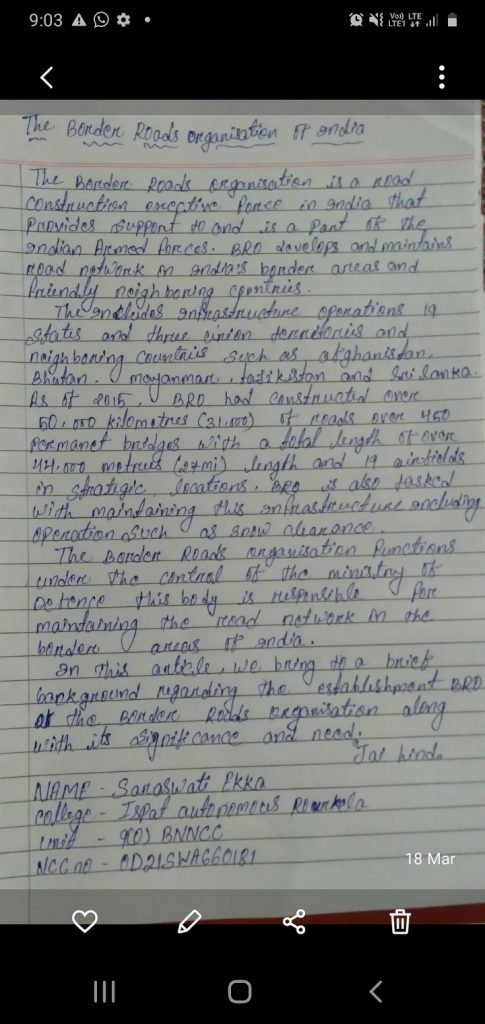 9:03
Vo)) LTE
LTE1
The Border Roads organisation of india
The Border Roads organisation is a road
construction exective force in india that
provides support to and is a part of the
indian Armed forces. BRO develops and maintains
road network in india's border areas and
friendly neighboring countries.
The includes infrastructure operations 19
states and three union territories and
neighboring countries such as afghanistan.
Bhutan. mayanmar, tajikistan and Sri lanka.
As of 2015, BRO had constructed over
50,000 kilometres (31,000) of roads over 450
permanet bridges with a total length of over
44,000 metres (27mi) length and 19 airfields
in strategic locations. BRO is also tasked
with maintaining this infrastructure including
operation such as snow clearance.
The Border Roads organisation functions
under the control of the ministry of
Defence this body is responsible for
maintaining the road network in the
border areas of india.
In this article, we bring to a brief
background regarding the establishment BRO
of the Border Roads organisation along
with its significance and need.
"Jai hind"
NAME - Saraswati Ekka
college - Ispat autonomous Rourkela
unit - 9(O) BNNCC
NCC no - OD21SWA660181
18 Mar